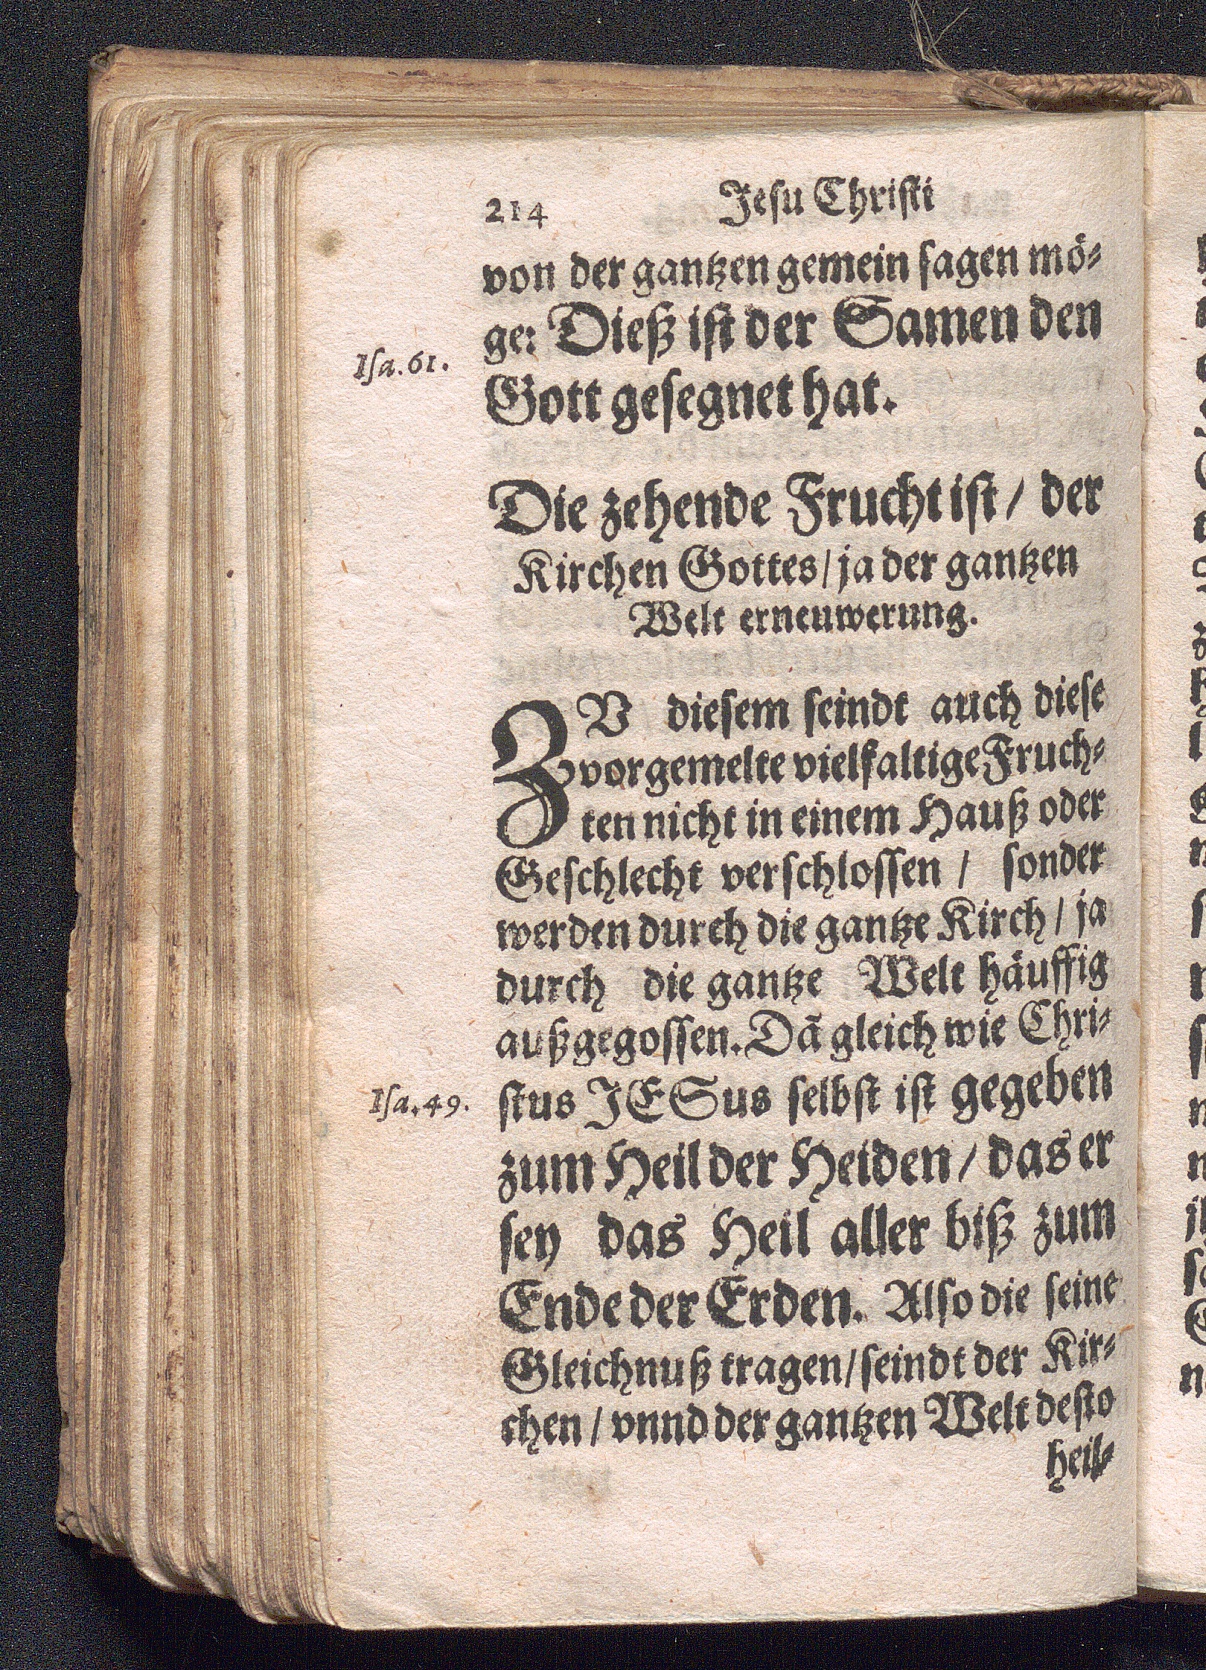 214 Jesu Christi
von der gantzen gemein sagen mö-
ge: Dieß ist der Samen den
Isa. 61.
Gott gesegnet hat.
Die zehende Frucht ist / der
Kirchen Gottes / ja der gantzen
Welt erneuwerung.
ZV diesem seindt auch diese
vorgemelte vielfaltige Fruch-
ten nicht in einem Hauß oder
Geschlecht verschlossen / sonder
werden durch die gantze Kirch / ja
durch die gantze Welt häuffig
außgegossen. Dã gleich wie Chri-
Isa. 49.
stus JESus selbst ist gegeben
zum Heil der Heiden / das er
sey das Heil aller biß zum
Ende der Erden. Also die seine
Gleichnuß tragen / seindt der Kir-
chen / vnnd der gantzen Welt desto
heil-